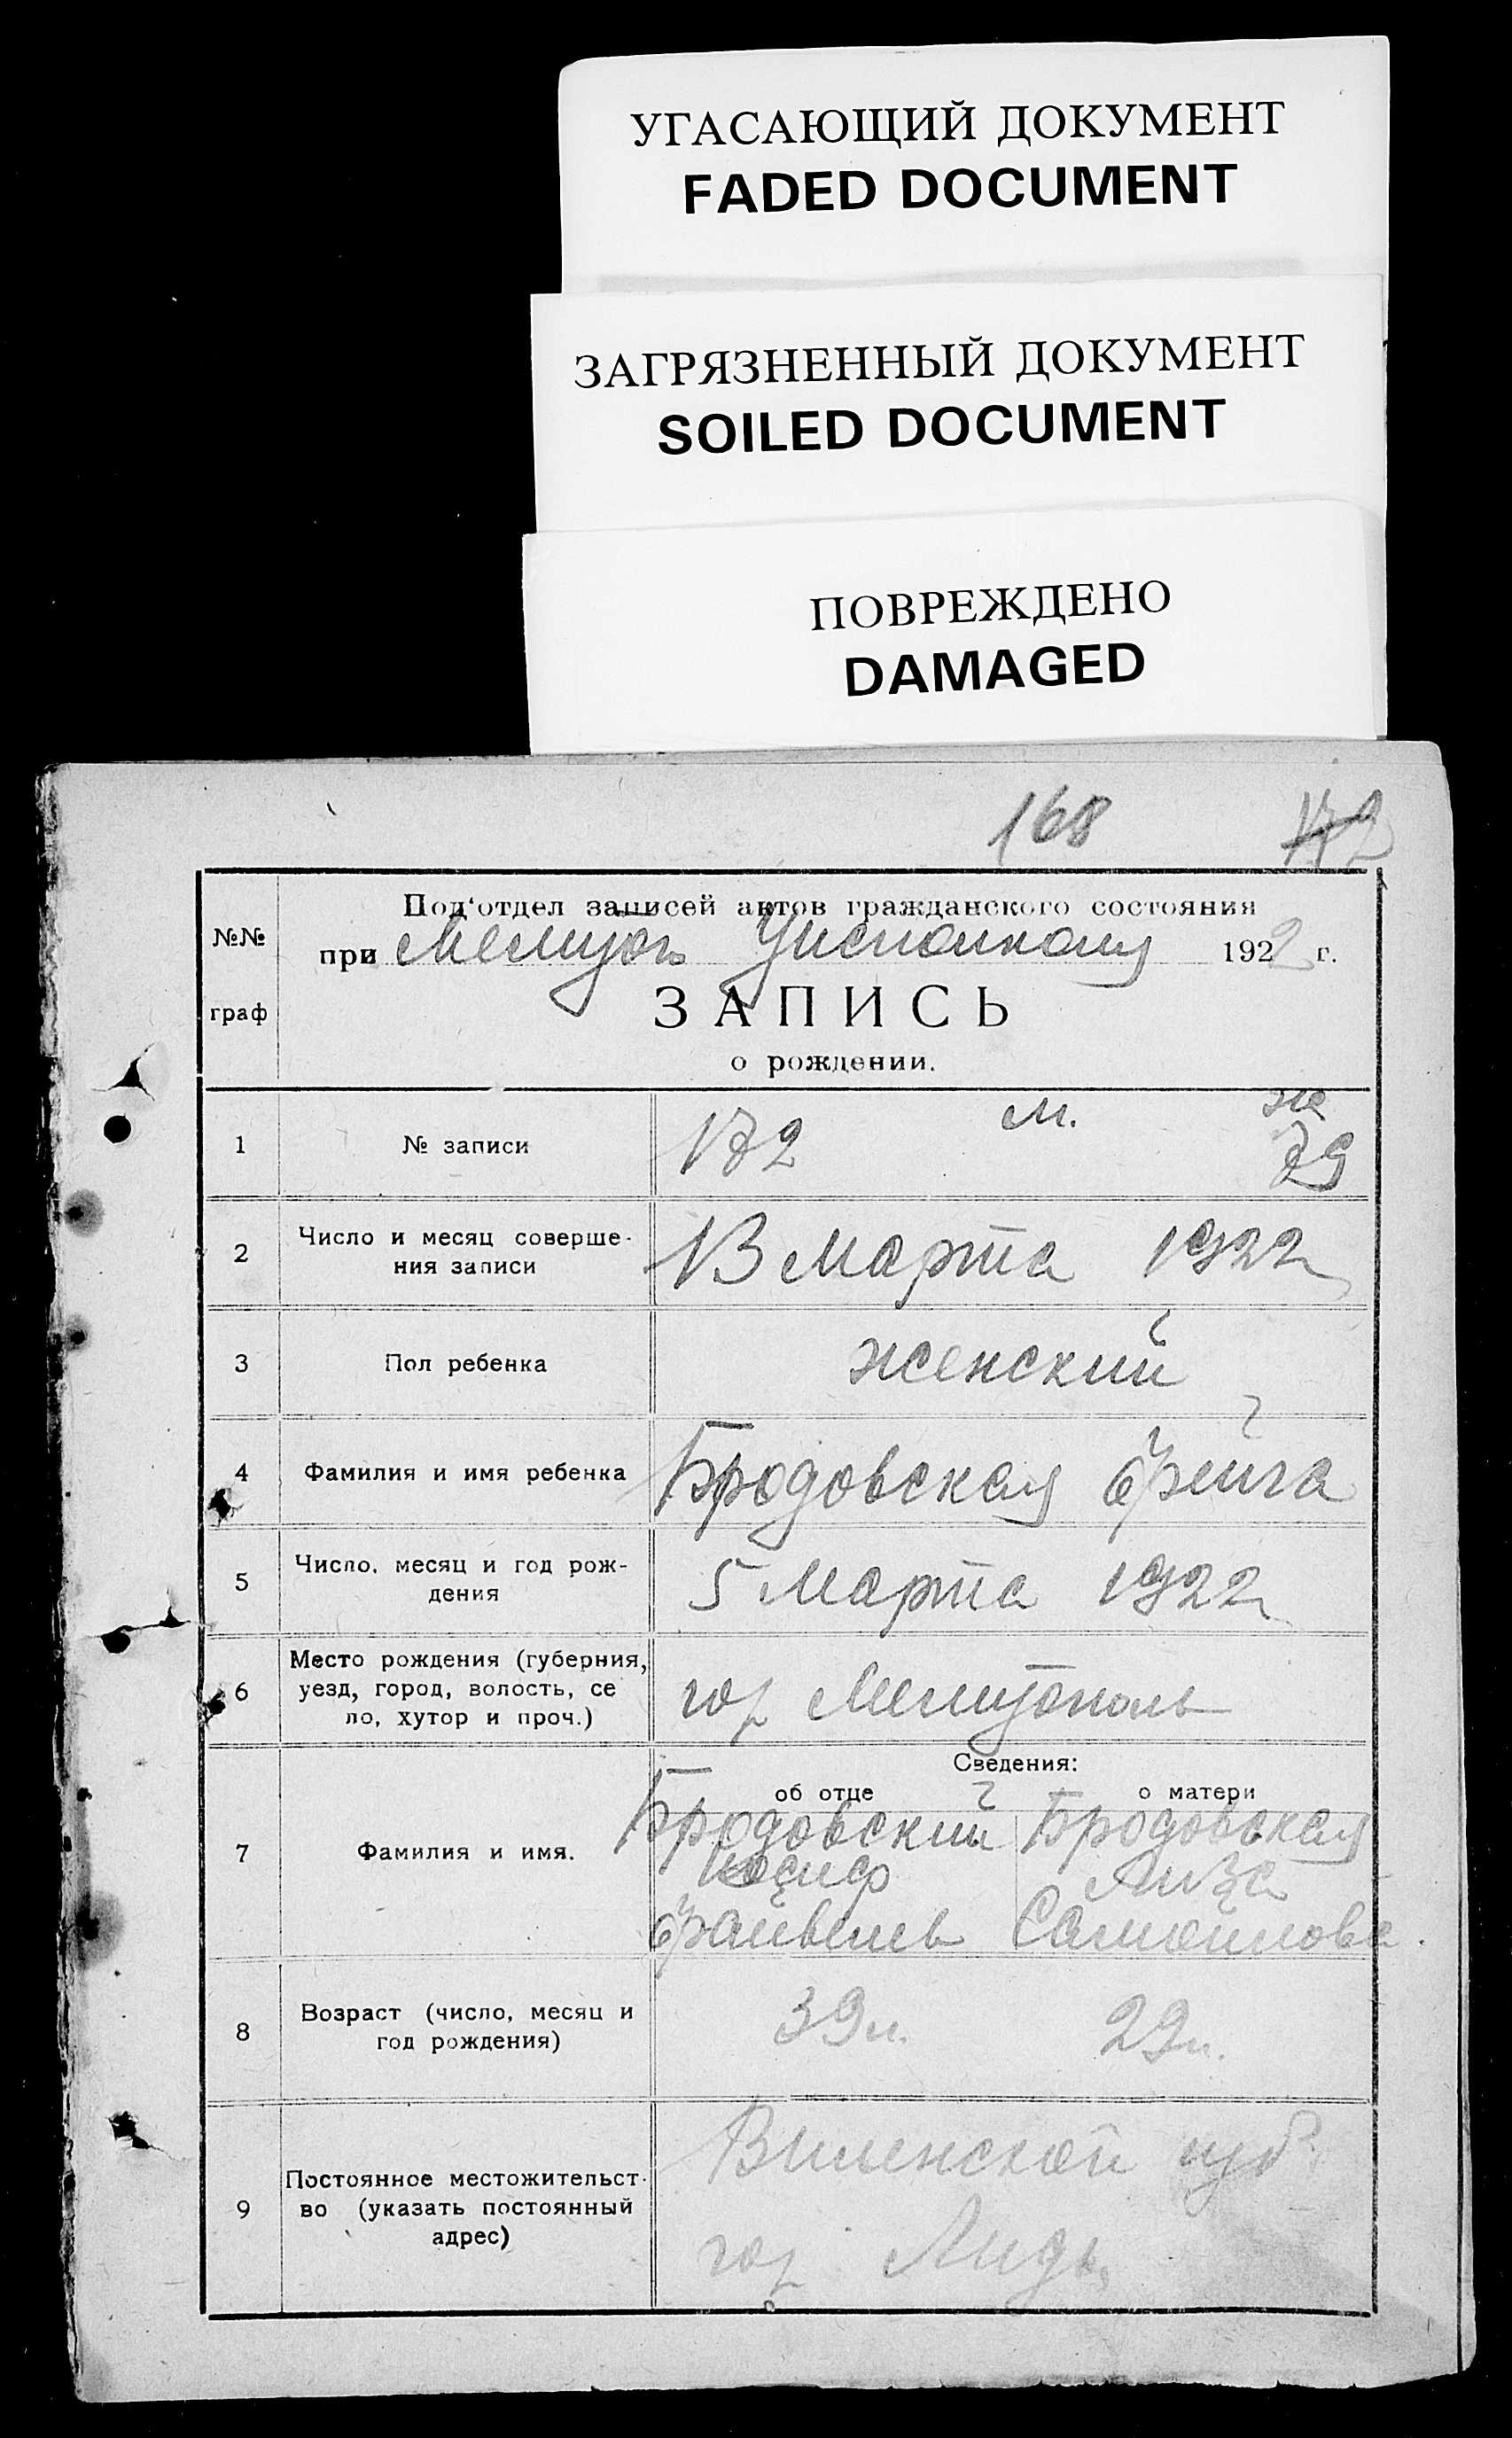 УГАСАЮЩИЙ ДОКУМЕНТ
FADED DOCUMENT
ЗАГРЯЗНЕННЫЙ ДОКУМЕНТ
SOILED DOCUMENT
ПОВРЕЖДЕНО
DAMAGED
168 172
№№ граф
Под'отдел записей актов гражданского состояния
при Мелитоп Уисполкома 1922 г.
ЗАПИСЬ
о рождении.
м. ж
1 № записи 172 79
2 Число и месяц соверше-
ния записи 13 Марта 1922
3 Пол ребенка женский
4 Фамилия и имя ребенка Бродовская Фейга
5 Число, месяц и год рож-
дения 5 Марта 1922
6 Место рождения (губерния,
уезд, город, волость, се
ло, хутор и проч.) гор Мелитополь
Сведения:
об отце о матери
7 Фамилия и имя. Бродовский Бродовская
Иосиф Лиза
Файвелев Самойлова
8 Возраст (число, месяц и
год рождения) 39 л. 29 л.
9 Постоянное местожительст-
во (указать постоянный
адрес) Виленской губ
гор Лида